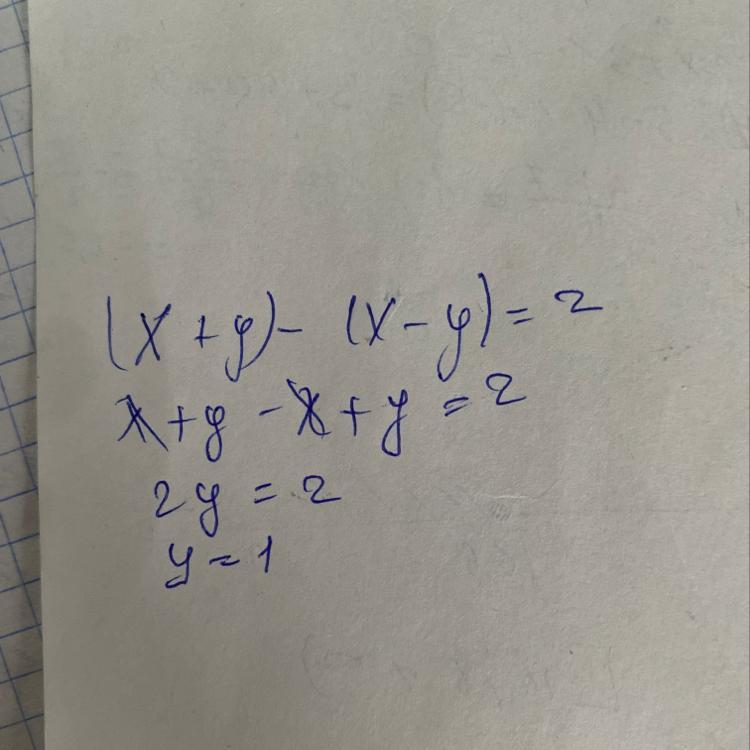 (x+y)- (x-y)=2
x+y-x+y=2
2y=2
y=1